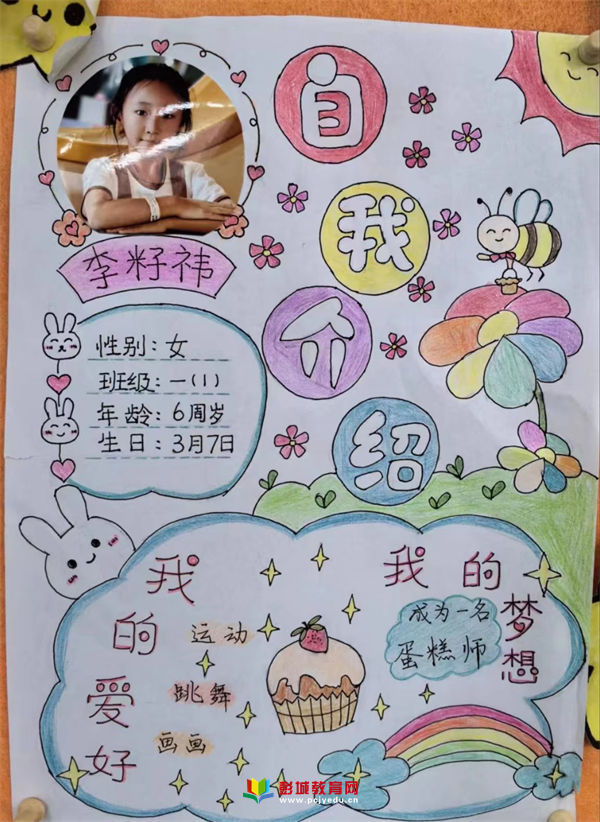 自我介绍
李籽祎
性别:女
班级:一(1)
年龄:6周岁
生日:3月7日
我的爱好
运动
跳舞
画画
我的梦想
成为一名
蛋糕师
彭城教育网
www.pcjyedu.cn